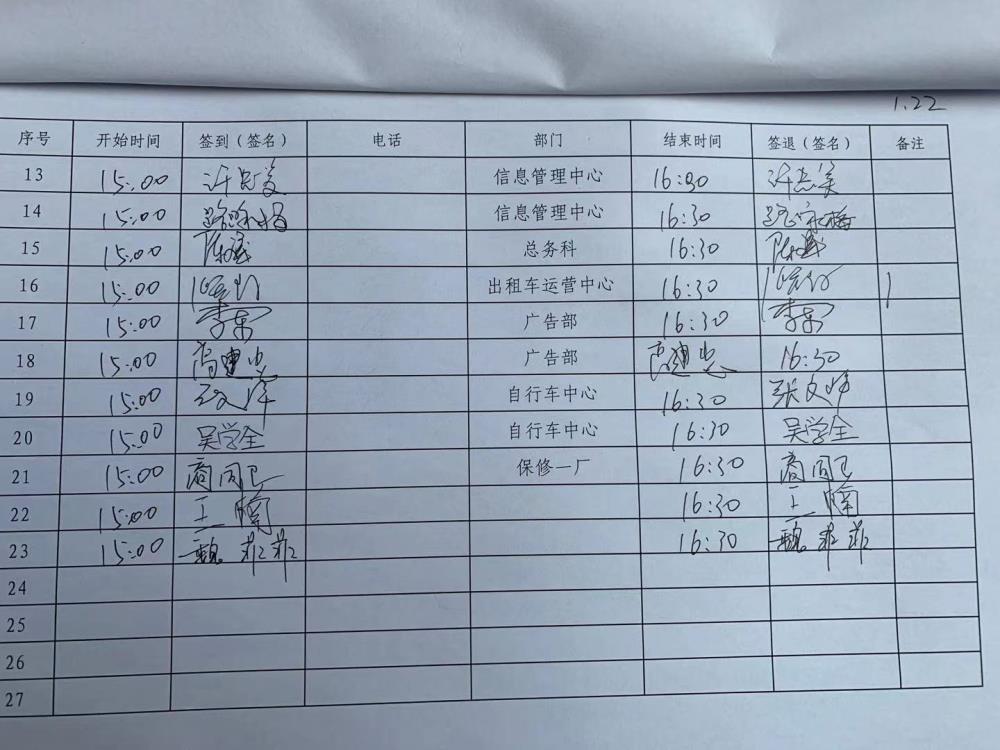 1.22
序号 开始时间 签到（签名） 电话 部门 结束时间 签退（签名） 备注
13 15:00 信息管理中心 16:30
14 15:00 信息管理中心 16:30
15 15:00 总务科 16:30
16 15:00 出租车运营中心 16:30
17 15:00 广告部 16:30
18 15:00 高建忠 广告部 高建忠 16:30
19 15:00 自行车中心 16:30
20 15:00 吴学全 自行车中心 16:30 吴学全
21 15:00 保修一厂 16:30
22 15:00 王楠 16:30 王楠
23 15:00 魏菲菲 16:30 魏菲菲
24
25
26
27